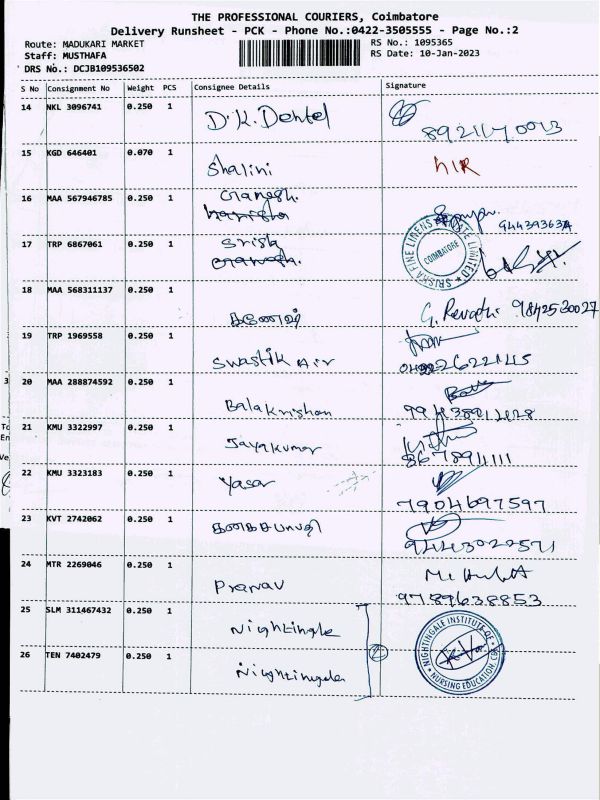 THE PROFESSIONAL COURIERS, Coimbatore
Delivery Runsheet - PCK - Phone No.:0422-3505555 - Page No.:2
Route: MADUKARI MARKET
Staff: MUSTHAFA
DRS No.: DCJB109536502
RS No.: 1095365
RS Date: 10-Jan-2023
S No Consignment No Weight PCS Consignee Details Signature
14 NKL 3096741 0.250 1 D.K. Dental
15 KGD 646401 0.070 1 Shalini
16 MAA 567946785 0.250 1 Ganesh.
17 TRP 6867061 0.250 1
SRISHA FINE LINENS PRIVATE LIMITED
COIMBATORE
18 MAA 568311137 0.250 1 கணேஷ் G. Revathi 9842530027
19 TRP 1969558 0.250 1 Swastik Air
20 MAA 288874592 0.250 1 Balakrishan
21 KMU 3322997 0.250 1 Jayakumar
8678911111
22 KMU 3323183 0.250 1 Yasar
7904697597
23 KVT 2742062 0.250 1 கனகசபாபதி
9443022571
24 MTR 2269046 0.250 1 Pranav
9789638853
25 SLM 311467432 0.250 1 Nightingle
26 TEN 7402479 0.250 1 Nightingale
2
NIGHTINGALE INSTITUTE OF
NURSING EDUCATION